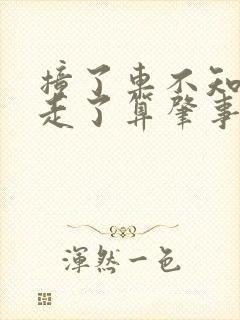 撞了車不知
走了算肇事
渾然一色